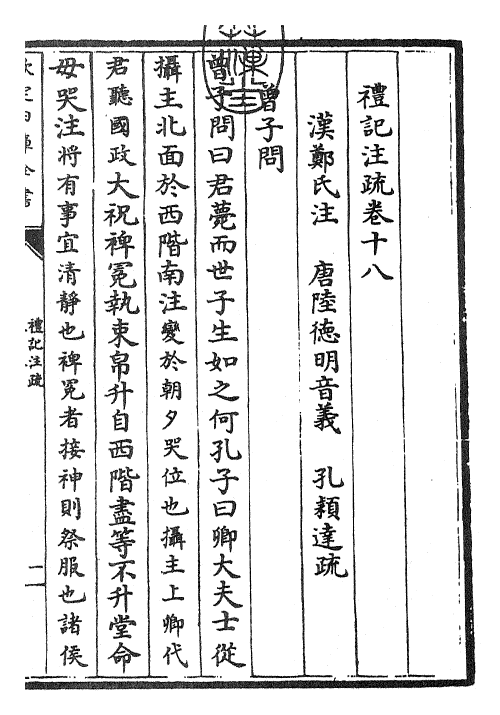 禮記注疏卷十八
漢鄭氏注 唐陸德明音義 孔穎達疏
曾子問
曾子問曰君薨而世子生如之何孔子曰卿大夫士從
攝主北面於西階南注變於朝夕哭位也攝主上卿代
君聽國政大祝裨冕執束帛升自西階盡等不升堂命
毋哭注將有事宜清靜也裨冕者接神則祭服也諸侯
禮記注疏
一